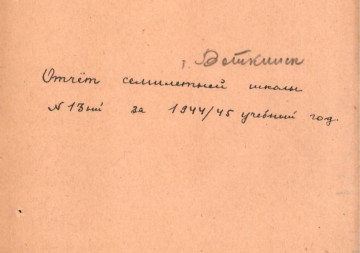 г. Воткинск
Отчёт семилетней школы
N 13ой за 1944/45 учебный год